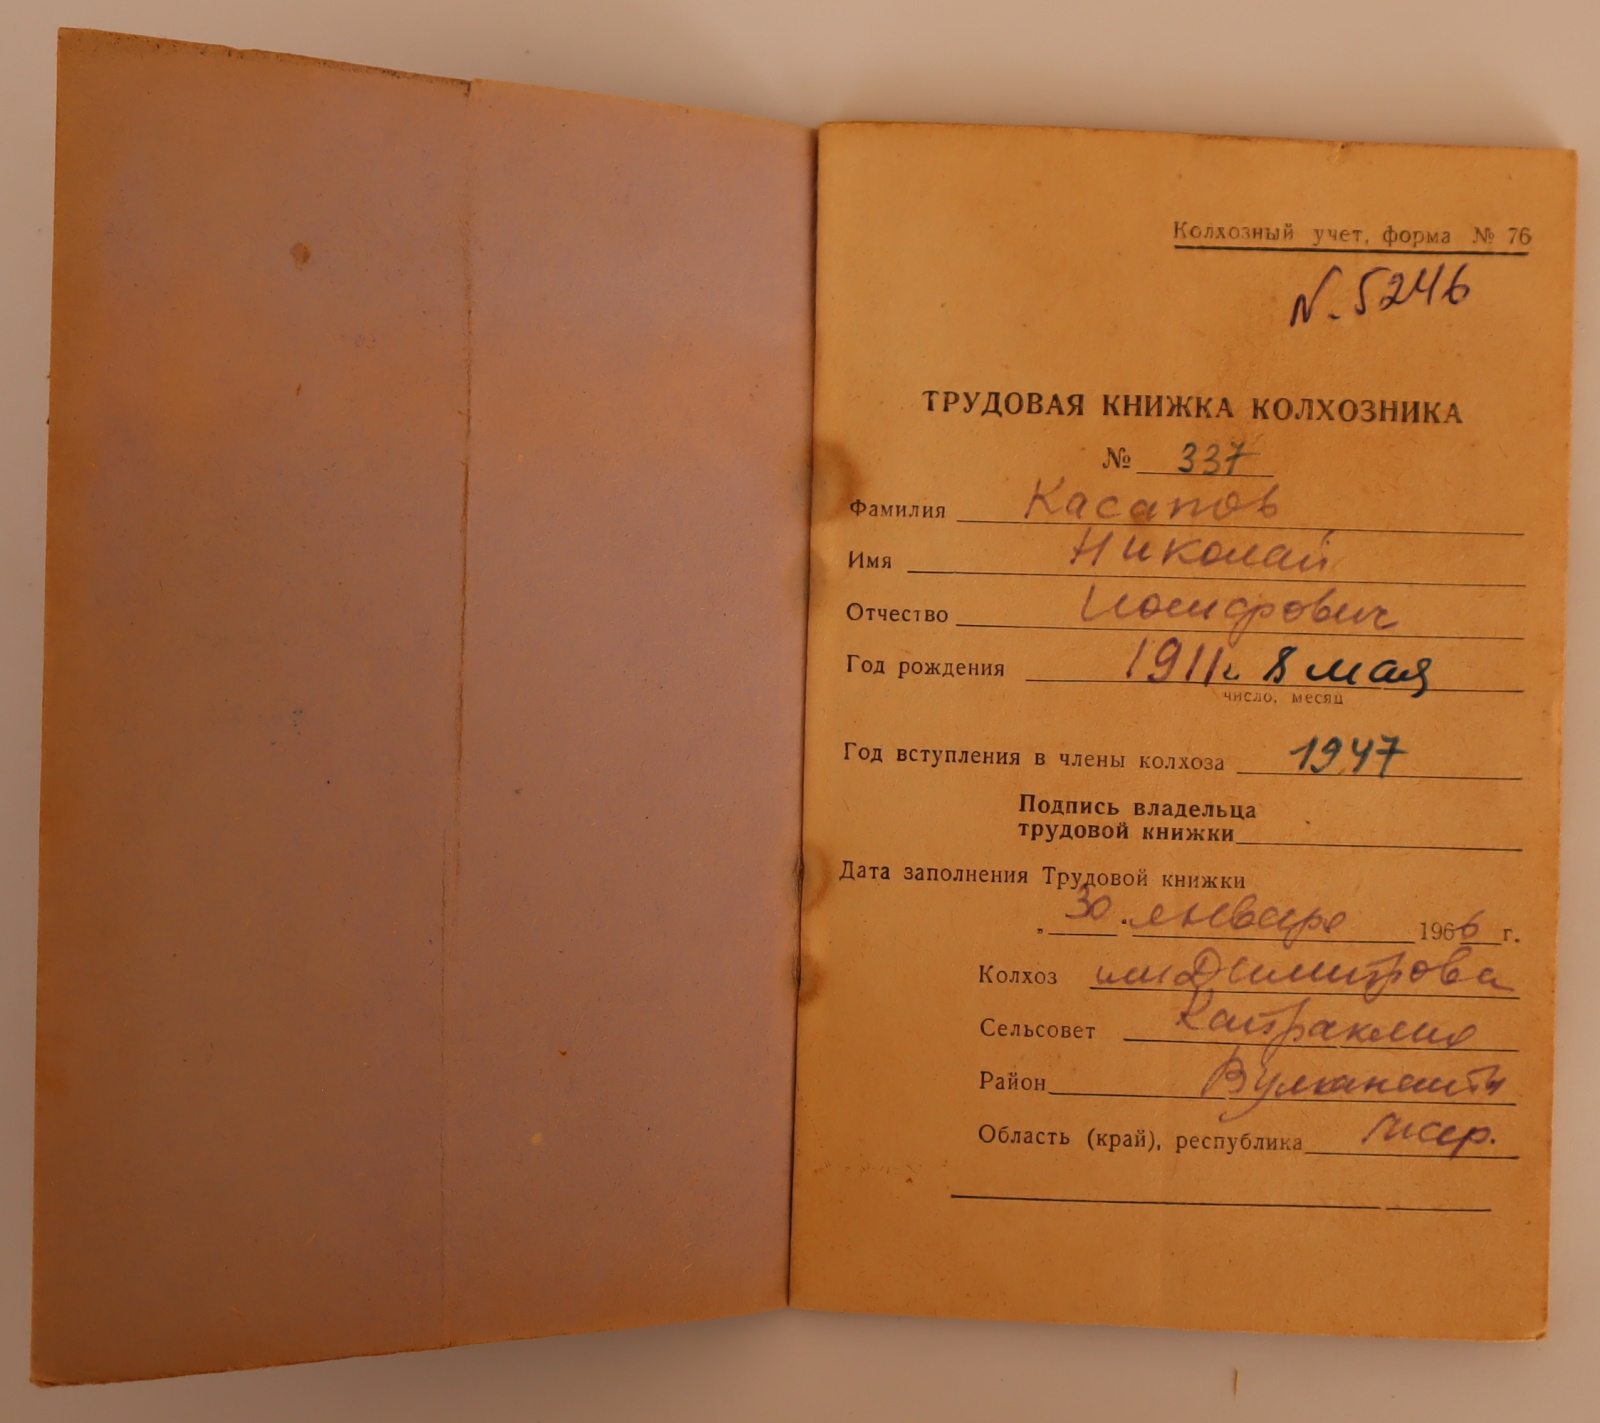 Колхозный учет, форма № 76
N. 5246
ТРУДОВАЯ КНИЖКА КОЛХОЗНИКА
№ 337
Фамилия Касапов
Имя Николай
Отчество Иосифович
Год рождения 1911 г. 8 мая
число, месяц
Год вступления в члены колхоза 1947
Подпись владельца
трудовой книжки
Дата заполнения Трудовой книжки
„30" января 1966 г.
Колхоз им Димитрова
Сельсовет
Район Вулканешты
Область (край), республика